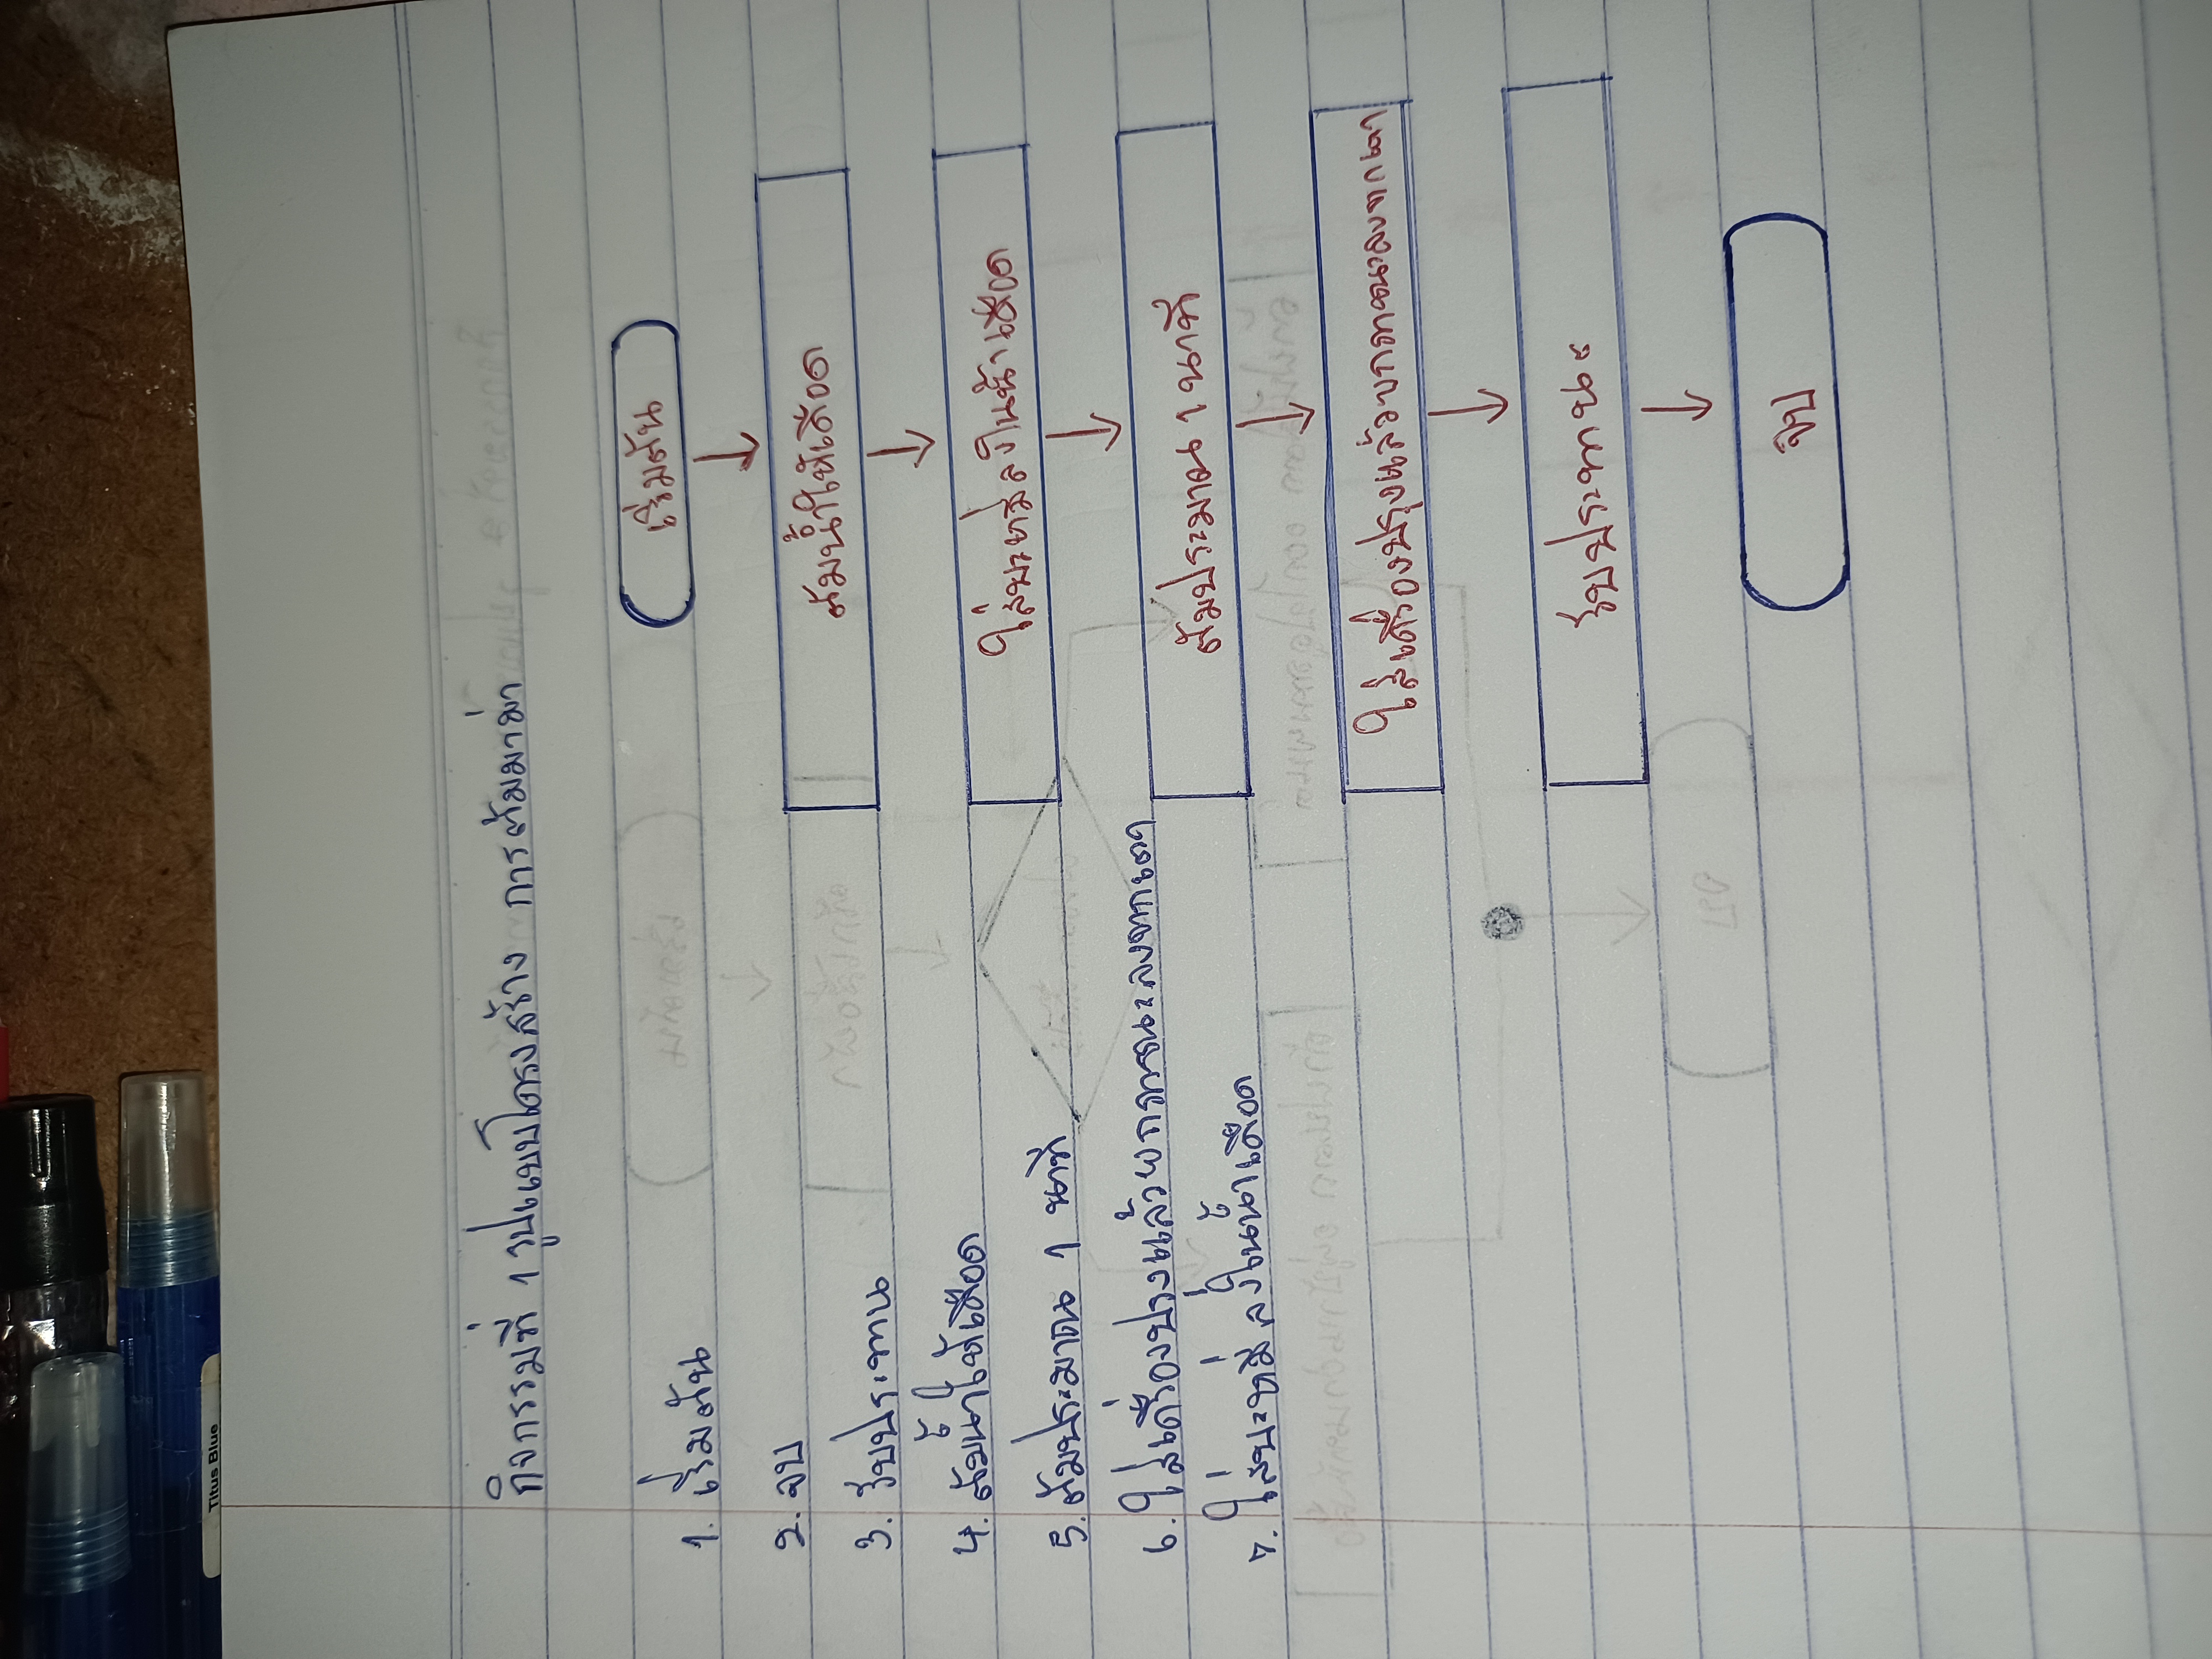 Titus Blue
กิจกรรมที่ 1 รูปแบบโครงสร้าง การต้มมาม่า
1. เริ่มต้น
2. จบ
3. รับประทาน
4. ต้มน้ำให้เดือด
5. ต้มประมาณ 1 นาที
6. ใส่เครื่องปรุงแล้วยกภาชนะลงจากเตา
7. ใส่บะหมี่ลงในน้ำเดือด
เริ่มต้น
ต้มน้ำให้เดือด
ใส่บะหมี่ลงในน้ำเดือด
ต้มประมาณ 1 นาที
ใส่เครื่องปรุงแล้วยกภาชนะลงจากเตา
รับประทาน
จบ